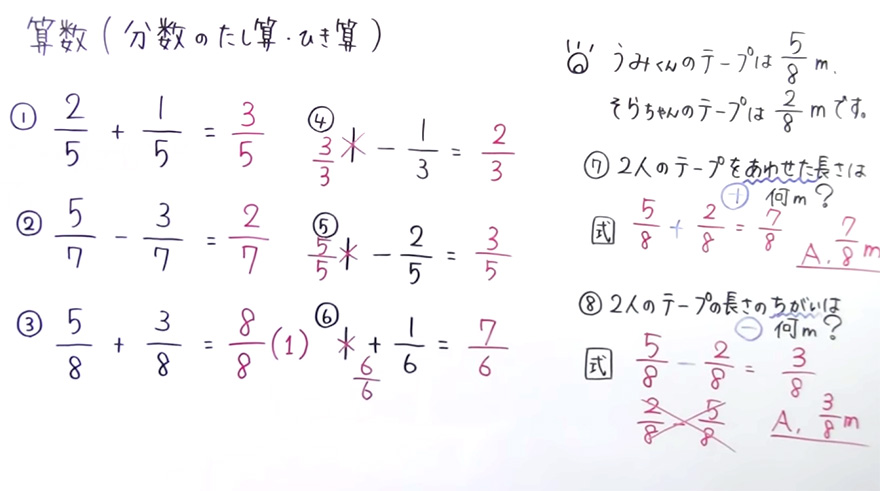 算数(分数のたし算・ひき算)
① 2/5 + 1/5 = 3/5
② 5/7 − 3/7 = 2/7
③ 5/8 + 3/8 = 8/8 (1)
④ 3/3 − 1/3 = 2/3
⑤ 5/5 − 2/5 = 3/5
⑥ 6/6 + 1/6 = 7/6
うみくんのテープは 5/8 m.
そらちゃんのテープは 2/8 m です。
⑦ 2人のテープをあわせた長さは
+ 何m?
式 5/8 + 2/8 = 7/8
A. 7/8 m
⑧ 2人のテープの長さのちがいは
− 何m?
式 5/8 − 2/8 = 3/8
2/8 − 5/8
A. 3/8 m